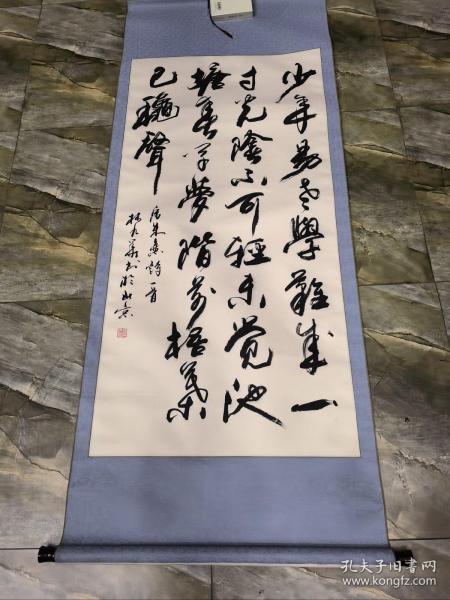 少年易老學難成一
寸光陰不可輕未覺池
塘春草夢階前梧葉
已龝聲
朱熹詩一首
書於北京
孔夫子旧书网
www.kongfz.com